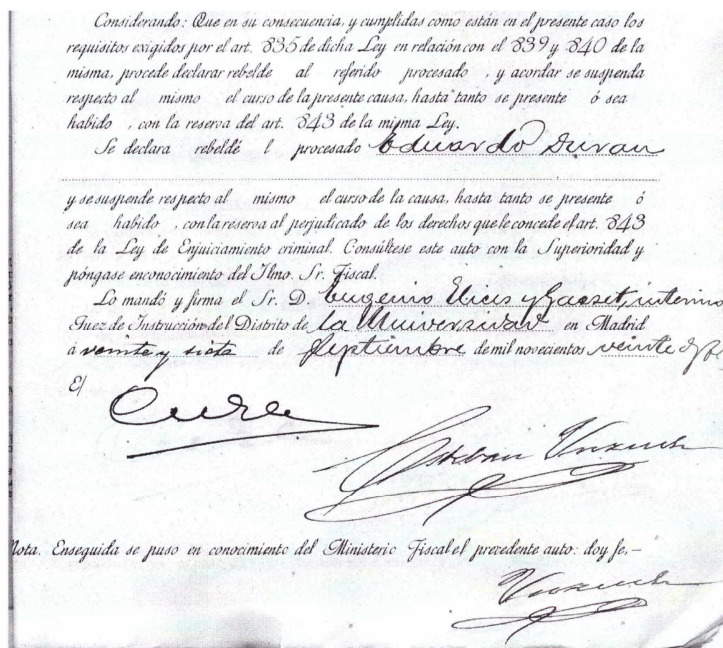 Considerando: Que en su consecuencia, y cumplidas como están en el presente caso los
requisitos exigidos por el art. 835 de dicha Ley en relación con el 839 y 840 de la
misma, procede declarar rebelde al referido procesado , y acordar se suspenda
respecto al mismo el curso de la presente causa, hasta tanto se presente ó sea
habido , con la reserva del art. 843 de la misma Ley.
Se declara rebelde l procesado Eduardo Duran
y se suspende respecto al mismo el curso de la causa, hasta tanto se presente ó
sea habido , con la reserva al perjudicado de los derechos que le concede el art. 843
de la Ley de Enjuiciamiento criminal. Consúltese este auto con la Superioridad y
póngase en conocimiento del Ilmo. Sr. Fiscal.
Lo mandó y firma el Sr. D. Eugenio y Gasset, interino
Juez de Instrucción del Distrito de la Universidad en Madrid
á veinte y siete de Septiembre de mil novecientos veinte
El
Esteban
Nota. Enseguida se puso en conocimiento del Ministerio Fiscal el precedente auto: doy fe.—